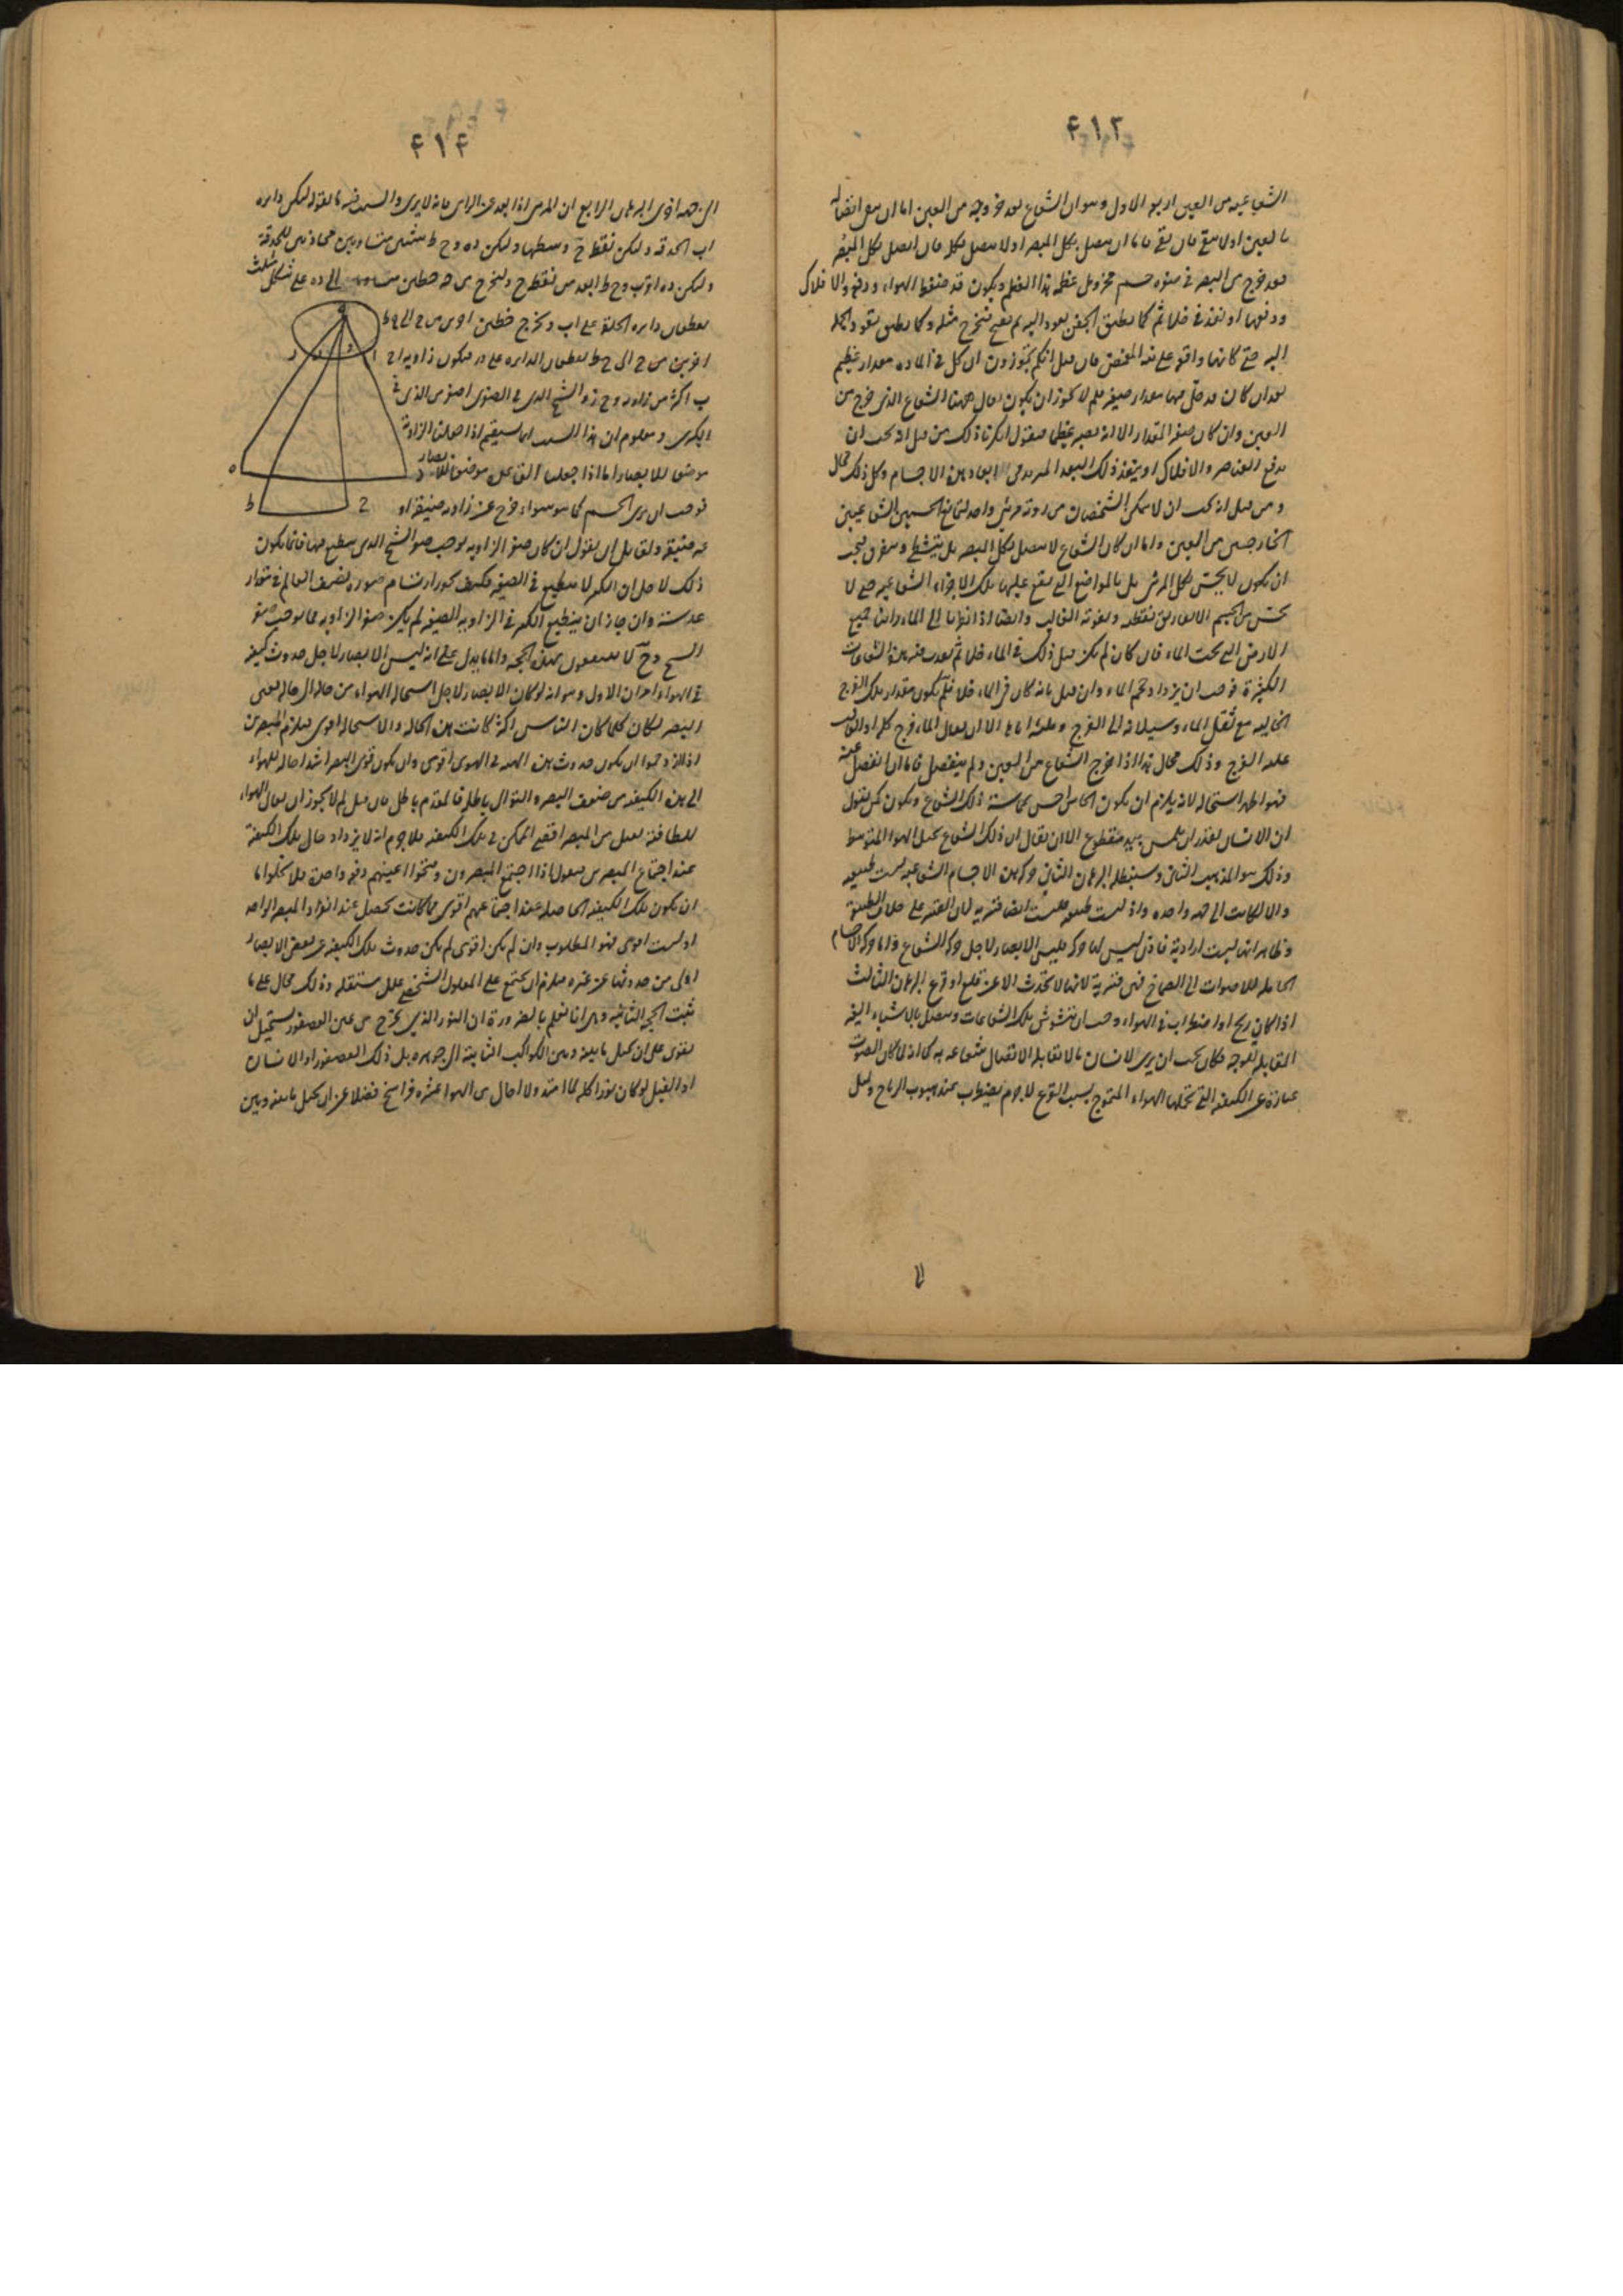 ٤١٣
الشعاعية من العين اربعة الاول وهو ان الشعاع بعد خروجه من العين اما ان يبقى اتصاله
بالعين اولا يبقى فان بقى فاما ان يتصل بكل المبصر او لا يتصل بكله فان اتصل بكل المبصر
فقد خرج من البصر جسم مخروط عظمه هذا العظم ويكون قد ضغط الهواء ودفع والافلاك
ودفعها او نفذ في خلاء ثم كما يطبق الجفن يعود اليه ثم يفتح فيخرج مثله وكلما يطبق يعود الجملة
اليه حتى كانها واقفة على نية المغمض فان قيل انكم تجوزون ان كل في المادة مقدار عظيم
بعد ان كان قد حل فيها مقدار صغير فلم لا يجوز ان يكون الحال ههنا الشعاع الذى خرج من
العين وان كان صغير المقدار الا انه يصير عظيما فنقول انكرنا ذلك من قبل انه يجب ان
يدفع العناصر والافلاك او ينفذ ذلك البعد في ابعاد هذه الاجسام وكل ذلك محال
ومن قبل انه يجب ان لا يمكن الشخصان من روية مرئى واحد لتمانع الجسمين الشعاعيين
الخارجين من العين واما ان كان الشعاع لا يتصل بكل المبصر بل يتشظى ويتفرق فيجب
ان يكون لا يحس بكل المرئى بل بالمواضع التى يقع عليها تلك الاجزاء الشعاعية حتى لا
يحس من الجسم الا بتفاريق نقطه ويفوته الغالب وايضا اذا نظرنا الى الماء راينا جميع
الارض التى تحت الماء فان كان لم يكن قبل ذلك في الماء خلاء ثم نفذت فيه هذه الشعاعات
الكثيرة فوجب ان يزداد حجم الماء وان قيل بانه كان في الماء خلاء فلم يكون مقدار تلك الفرج
الخالية مع ثقل الماء وسيلانه الى الفرج وملئه اياها الا ان يقال الماء فرج كله او الغالب
عليه الفرج وذلك محال هذا اذا خرج الشعاع من العين ولم ينفصل فاما ان انفصل عنه
فهو اظهر استحالة لانه يلزم ان يكون الحاس احس بمماسته ذلك الشعاع ويكون كمن يقول
ان الانسان يقدر ان يلمس بيد مقطوع الا ان يقال ان ذلك الشعاع يحيل الهواء المتوسط
وذلك هو المذهب الثانى وسنبطله البرهان الثانى حركة هذه الاجسام الشعاعية ليست طبيعية
والا لكانت الى جهة واحدة واذ ليست طبيعية فليست ايضا قسرية لان القسر على خلاف الطبيعة
وظاهر انها ليست ارادية فاذن ليس لها حركة فليس الابصار لاجل حركة الشعاع واما حركة الاجسام
الحاملة للاصوات الى الصماخ فهى قسرية لانها لا تحدث الا عن قلع او قرع البرهان الثالث
اذا كان ريح او اضطراب في الهواء وجب ان تتشوش تلك الشعاعات وتتصل بالاشياء الغير
المقابلة للوجه فكان يجب ان يرى الانسان ما لا يقابله لاتصال شعاعه به كما انه لما كان الصوت
عبارة عن الكيفية التى تحملها الهواء المتموج بسبب القرع لا جرم يضطرب عند هبوب الرياح ويميل
٤١٤
الى جهة اخرى البرهان الرابع ان المرئى اذا بعد عن الرائى فانه لا يرى والسبب فيه ما نقول ليكن دايرة
اب الحدقة ولكن نقطة ح وسطها وليكن ده وح ط شيئين متساويين محاذيين للحدقة
وليكن ده اقرب وح ط ابعد من نقطة ح ولنخرج من ح خطين الى ده على شكل مثلث
يقطعان دايرة الحلقة على اب ونخرج خطين اخرين من ح الى ح ط
اخرين من ح الى ح ط يقطعان الدايرة على در فيكون زاوية اح
ب اكثر من زاوية وح ز والشبح الذى في الصغرى اصغر من الذى في
الكبرى ومعلوم ان هذا السبب انما يستقيم اذا جعلنا الزاوية
موضعا للابصار اما اذا جعلنا القاعدة موضعا للابصار
فوجب ان يرى الجسم كما هو سواء خرج عن زاوية ضيقة او
غير ضيقة ولقائل ان يقول ان كان صغر الزاوية يوجب صغر الشبح الذى ينطبع فيها فانما يكون
ذلك لاجل ان الكبير لا ينطبع في الصغير فكيف يجوز ارتسام صورة نصف العالم في مقدار
عدسة وان جاز ان ينطبع الكبير في الزاوية الصغيرة لم يكن صغر الزاوية مما يوجب صغر
الشبح وح لا ينتفعون بهذه الحجة واما ما يدل على انه ليس الابصار لاجل حدوث كيفية
في الهواء فامران الاول وهو انه لو كان الابصار لاجل استحالة الهواء من حاله الى حالة بعين
البصر لكان كلما كان الناس اكثر كانت هذه الحالة والاستحالة اقوى فيلزم المبصرين
اذا ازدحموا ان يكون حدوث هذه الهيئة في الهوى اقوى وان يكون قوى البصر اشد احالة للهواء
الى هذه الكيفية من ضعيف البصر والتوالى باطلة فالمقدم باطل فان قيل لم لا يجوز ان يقال الهواء
للطافته يقبل من المبصر اقصى الممكن في تلك الكيفية فلا جرم انه لا يزداد حال تلك الكيفية
عند اجتماع المبصرين فنقول اذا اجتمع المبصرون وفتحوا اعينهم دفعة واحدة فلا يخلوا ما
ان يكون تلك الكيفية الحاصلة عند اجتماعهم اقوى مما كانت تحصل عند انفراد المبصر الواحد
او ليست اقوى فهو المطلوب وان لم يكن اقوى لم يكن حدوث تلك الكيفية عن بعض الابصار
اولى من حدوثها عن غيره فيلزم ان يجتمع على المعلول الشخصى علل مستقلة وذلك محال على ما
ثبت الحجة الثانية وهى انا نعلم بالضرورة ان النور الذى يخرج من عين العصفور يستحيل ان
يقوى على ان يحيل ما بينه وبين الكواكب الثابتة الى جوهره بل ذلك العصفور او الانسان
او الفيل لو كان نورا كله لما امتد ولا احال من الهوا عشرة فراسخ فضلا عن ان يحيل ما بينه وبين